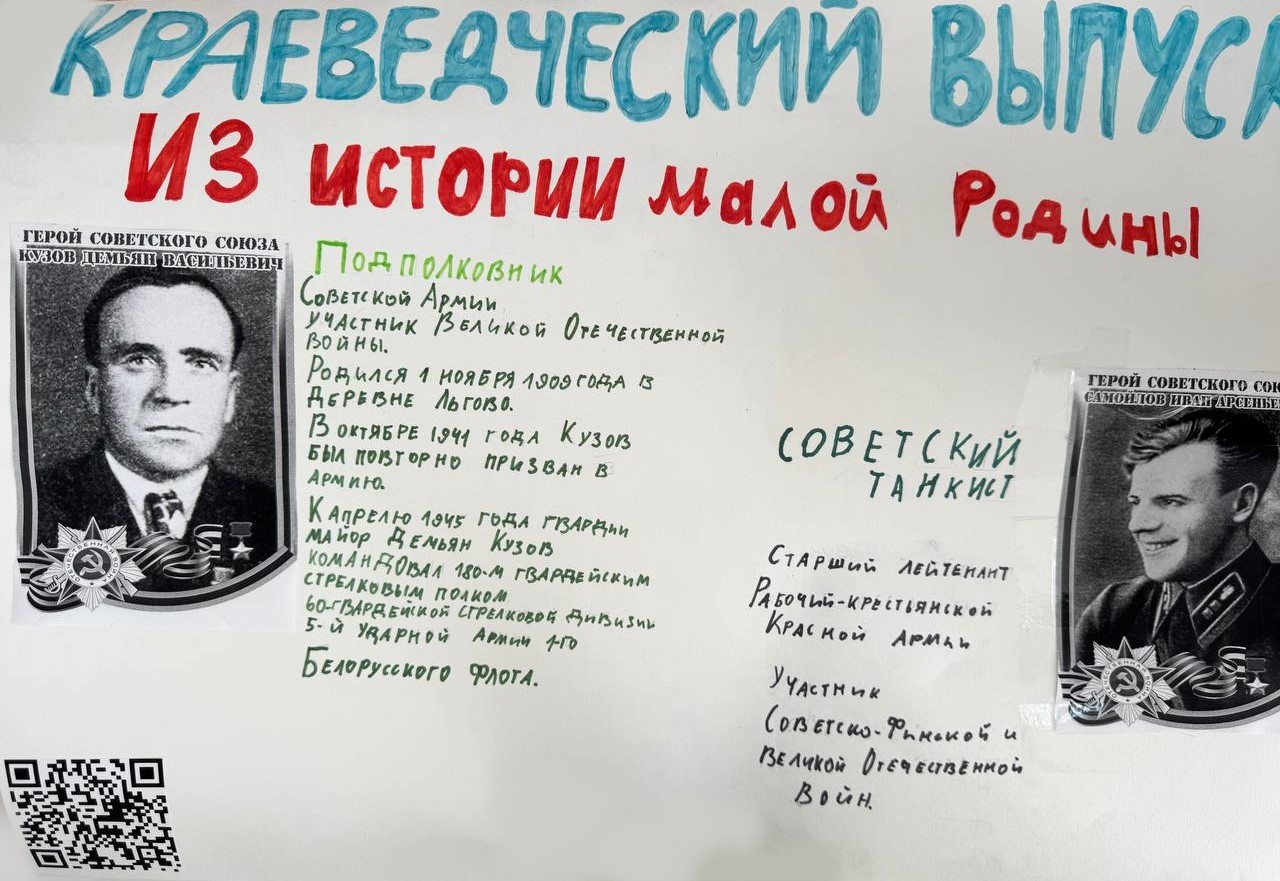 КРАЕВЕДЧЕСКИЙ ВЫПУСК
ИЗ ИСТОРИИ МАЛОЙ РОДИНЫ
ГЕРОЙ СОВЕТСКОГО СОЮЗА
КУЗОВ ДЕМЬЯН ВАСИЛЬЕВИЧ
ОТЕЧЕСТВЕННАЯ ВОЙНА
ПОДПОЛКОВНИК
СОВЕТСКОЙ АРМИИ
УЧАСТНИК ВЕЛИКОЙ ОТЕЧЕСТВЕННОЙ
ВОЙНЫ.
РОДИЛСЯ 1 НОЯБРЯ 1909 ГОДА В
ДЕРЕВНЕ ЛЬГОВО.
В ОКТЯБРЕ 1941 ГОДА КУЗОВ
БЫЛ ПОВТОРНО ПРИЗВАН В
АРМИЮ.
К АПРЕЛЮ 1945 ГОДА ГВАРДИИ
МАЙОР ДЕМЬЯН КУЗОВ
КОМАНДОВАЛ 180-М ГВАРДЕЙСКИМ
СТРЕЛКОВЫМ ПОЛКОМ
60-ГВАРДЕЙСКОЙ СТРЕЛКОВОЙ ДИВИЗИИ
5-Й УДАРНОЙ АРМИИ 1-ГО
БЕЛОРУССКОГО ФЛОТА.
ГЕРОЙ СОВЕТСКОГО СОЮ
САМОЙЛОВ ИВАН АРСЕНЬЕ
ОТЕЧЕСТВЕННАЯ ВОЙНА
СОВЕТСКИЙ
ТАНКИСТ
СТАРШИЙ ЛЕЙТЕНАНТ
РАБОЧИЙ-КРЕСТЬЯНСКОЙ
КРАСНОЙ АРМИИ
УЧАСТНИК
СОВЕТСКО-ФИНСКОЙ И
ВЕЛИКОЙ ОТЕЧЕСТВЕННОЙ
ВОЙН.